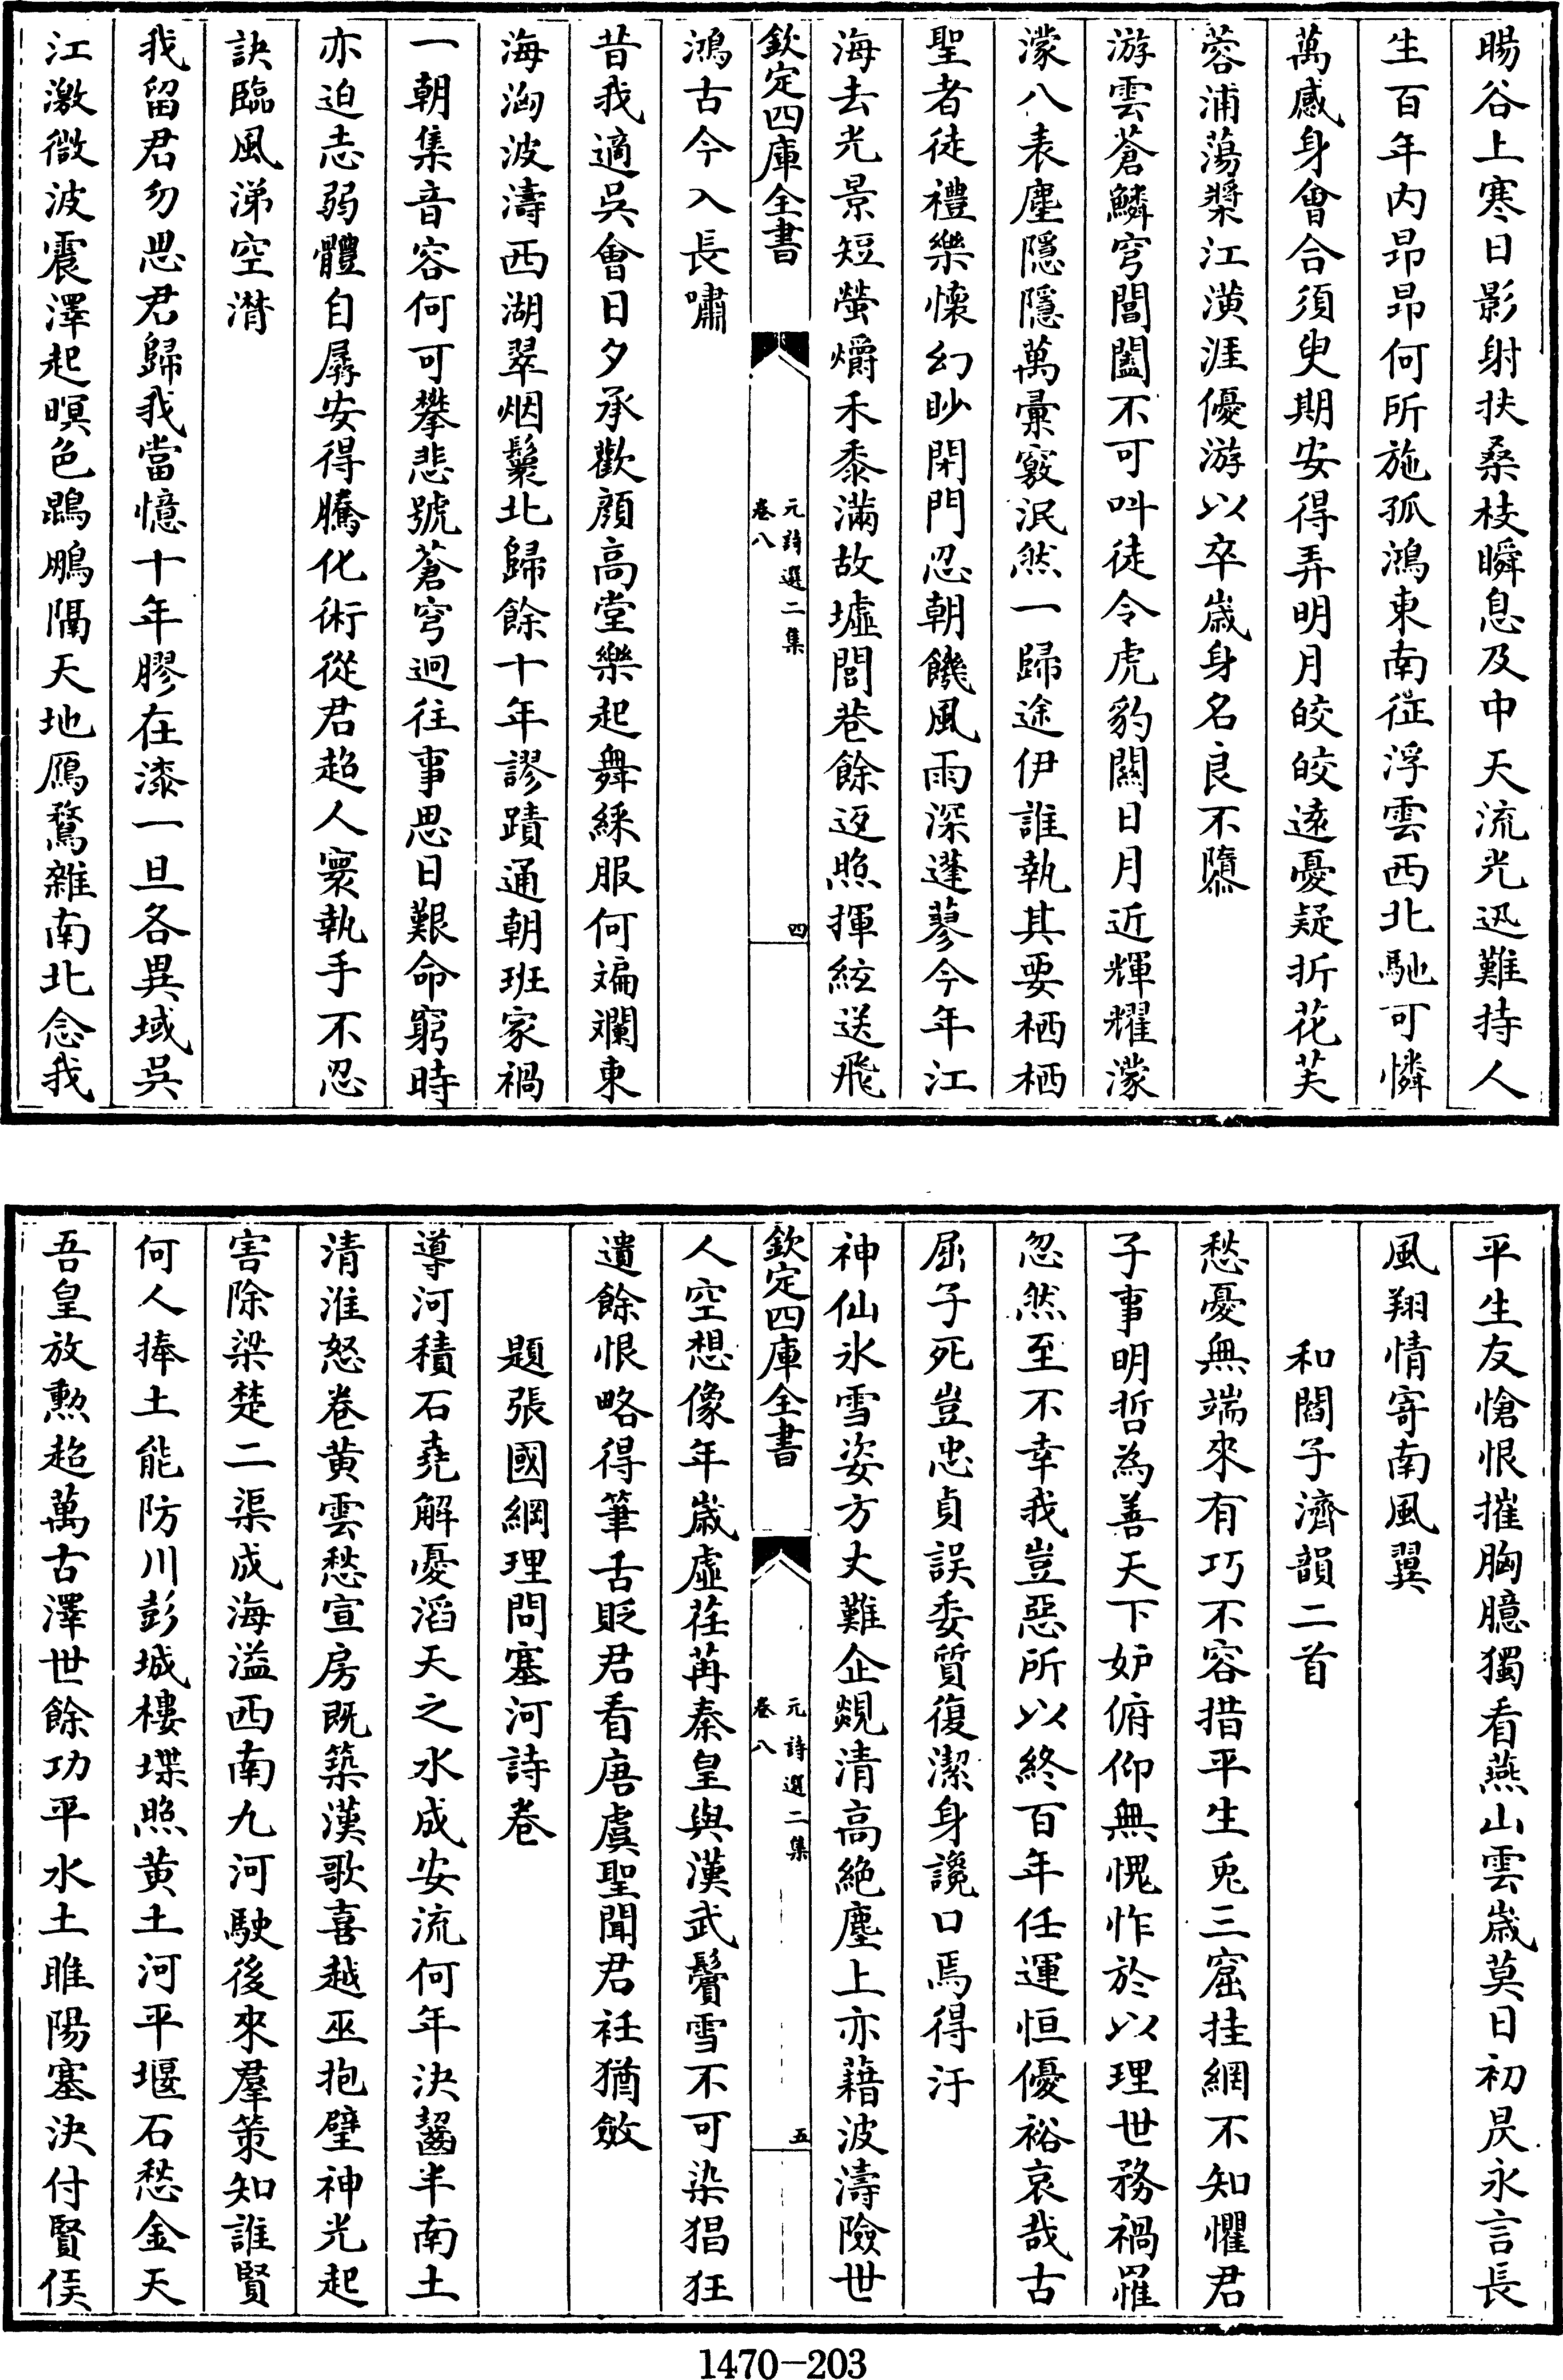 暘谷上寒日影射扶桑枝瞬息及中天流光迅難持人
生百年内昂昂何所施孤鴻東南征浮雲西北馳可憐
萬感身會合須臾期安得弄明月皎皎遠憂疑折花芙
蓉浦蕩槳江漢涯優游以卒歲身名良不隳
游雲蒼鱗穹閶闔不可叫徒令虎豹關日月近輝耀濛
濛八表塵隱隱萬彙竅泯然一歸途伊誰執其要栖栖
聖者徒禮樂懷幻眇閉門忍朝饑風雨深蓬蓼今年江
海去光景短螢爝禾黍滿故墟閭巷餘返照揮絃送飛
欽定四庫全書
元詩選二集
卷八
四
鴻古今入長嘯
昔我適吳會日夕承歡顔高堂樂起舞綵服何斒斕東
海洶波濤西湖翠烟鬟北歸餘十年謬蹟通朝班家禍
一朝集音容何可攀悲號蒼穹迥往事思日艱命窮時
亦迫志弱體自孱安得騰化術從君超人寰執手不忍
訣臨風涕空潸
我留君勿思君歸我當憶十年膠在漆一旦各異域吳
江激微波震澤起暝色鵾鵬隔天地鴈鶩雜南北念我
平生友愴恨摧胸臆獨看燕山雲歲莫日初昃永言長
風翔情寄南風翼
和閻子濟韻二首
愁憂無端來有巧不容措平生兎三窟挂網不知懼君
子事明哲為善天下妒俯仰無愧怍於以理世務禍罹
忽然至不幸我豈惡所以終百年任運恒優裕哀哉古
屈子死豈忠貞誤委質復潔身讒口焉得汙
神仙氷雪姿方丈難企覬清高絶塵上亦藉波濤險世
欽定四庫全書
元詩選二集
卷八
五
人空想像年歲虛荏苒秦皇與漢武鬢雪不可染猖狂
遺餘恨略得筆舌貶君看唐虞聖聞君衽猶斂
題張國綱理問塞河詩卷
導河積石堯解憂滔天之水成安流何年決齧半南土
清淮怒卷黄雲愁宣房既築漢歌喜越巫抱璧神光起
害除梁楚二渠成海溢西南九河駛後來羣策知誰賢
何人捧土能防川彭城樓堞照黄土河平堰石愁金天
吾皇放勲超萬古澤世餘功平水土睢陽塞決付賢侯
1470-203